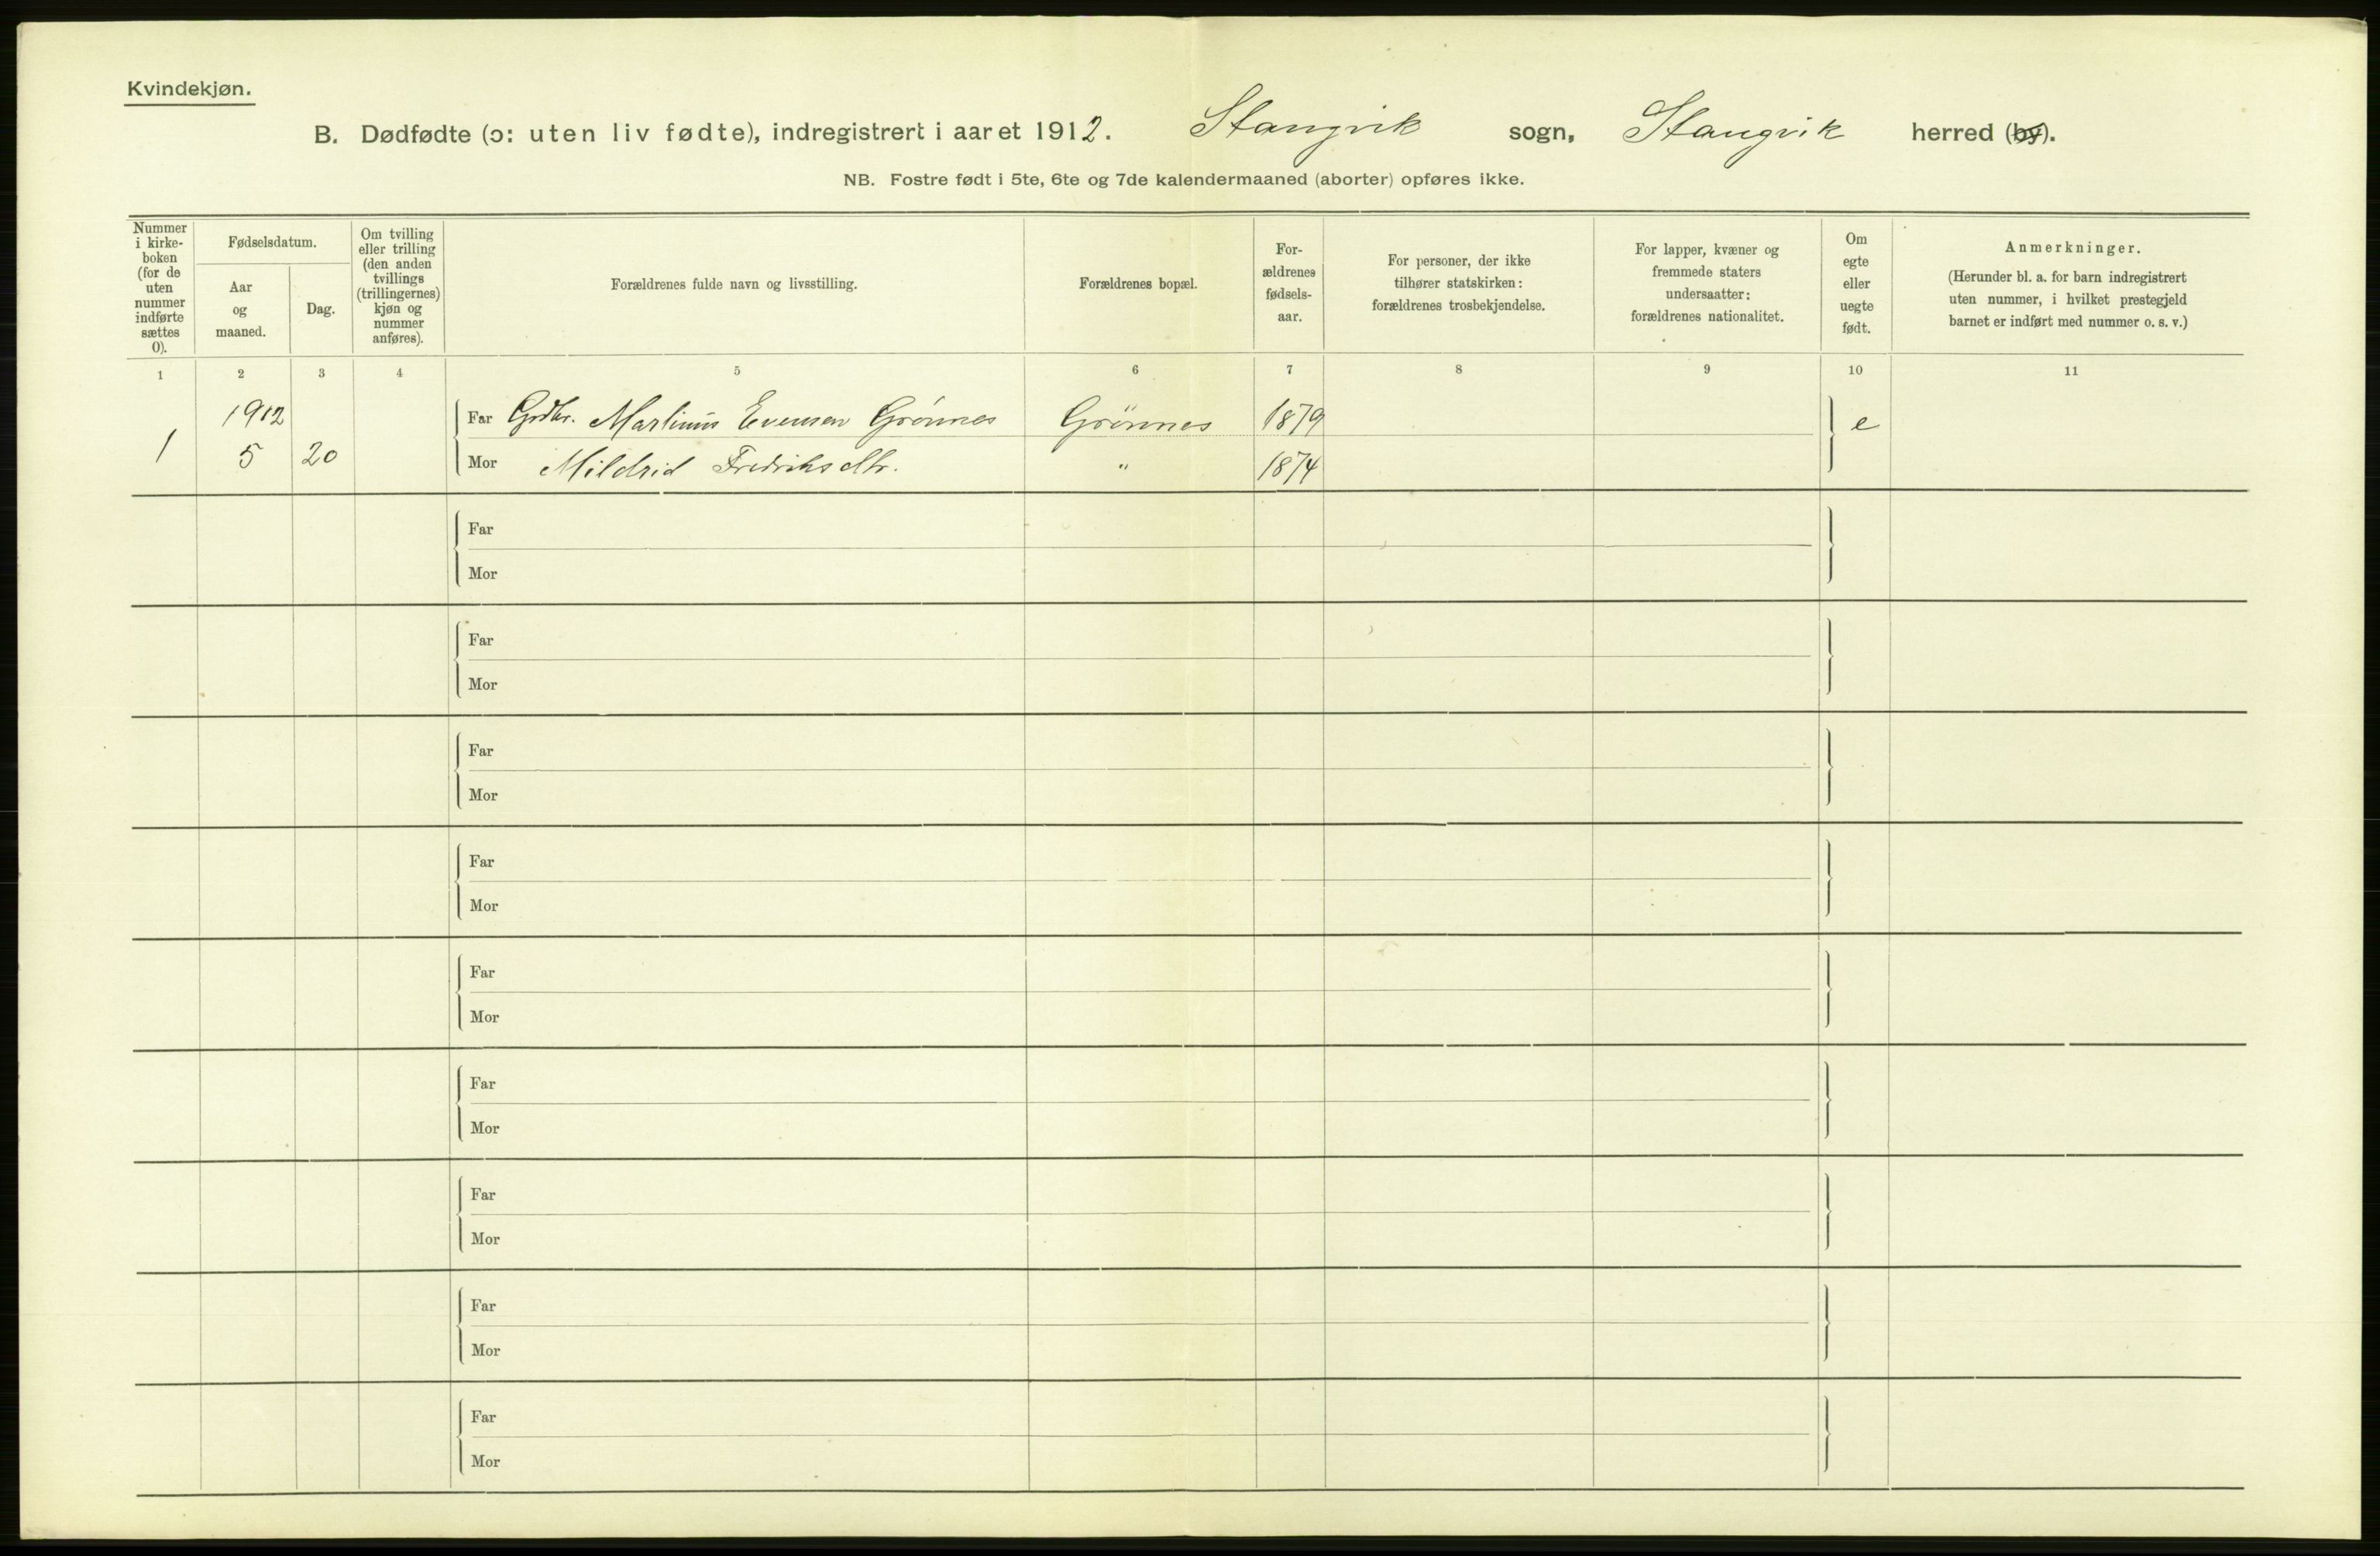 Kvindekjøn.
B. Dødfødte (ɔ: uten liv fødte), indregistrert i aaret 1912. Stangvik sogn, Stangvik herred (by).
NB. Fostre født i 5te, 6te og 7de kalendermaaned (aborter) opføres ikke.
Nummer
i kirke-
boken
(for de
uten
nummer
indførte
sættes
0).
Fødselsdatum.
Aar
og
maaned.
Dag.
Om tvilling
eller trilling
(den anden
tvillings
(trillingernes)
kjøn og
nummer
anføres).
Forældrenes fulde navn og livsstilling.
Forældrenes bopæl.
For-
ældrenes
fødsels-
aar.
For personer, der ikke
tilhører statskirken:
forældrenes trosbekjendelse.
For lapper, kvæner og
fremmede staters
undersaatter:
forældrenes nationalitet.
Om
egte
eller
uegte
født.
Anmerkninger.
(Herunder bl. a. for barn indregistrert
uten nummer, i hvilket prestegjeld
barnet er indført med nummer o. s. v.)
1 2 3 4 5 6 7 8 9 10 11
1912 Far Grdbr. Martinus Evensen Grönnes Grönnes 1879 e
1 5 20 Mor Mildrid Fredriksdtr. " 1874
Far
Mor
Far
Mor
Far
Mor
Far
Mor
Far
Mor
Far
Mor
Far
Mor
Far
Mor
Far
Mor